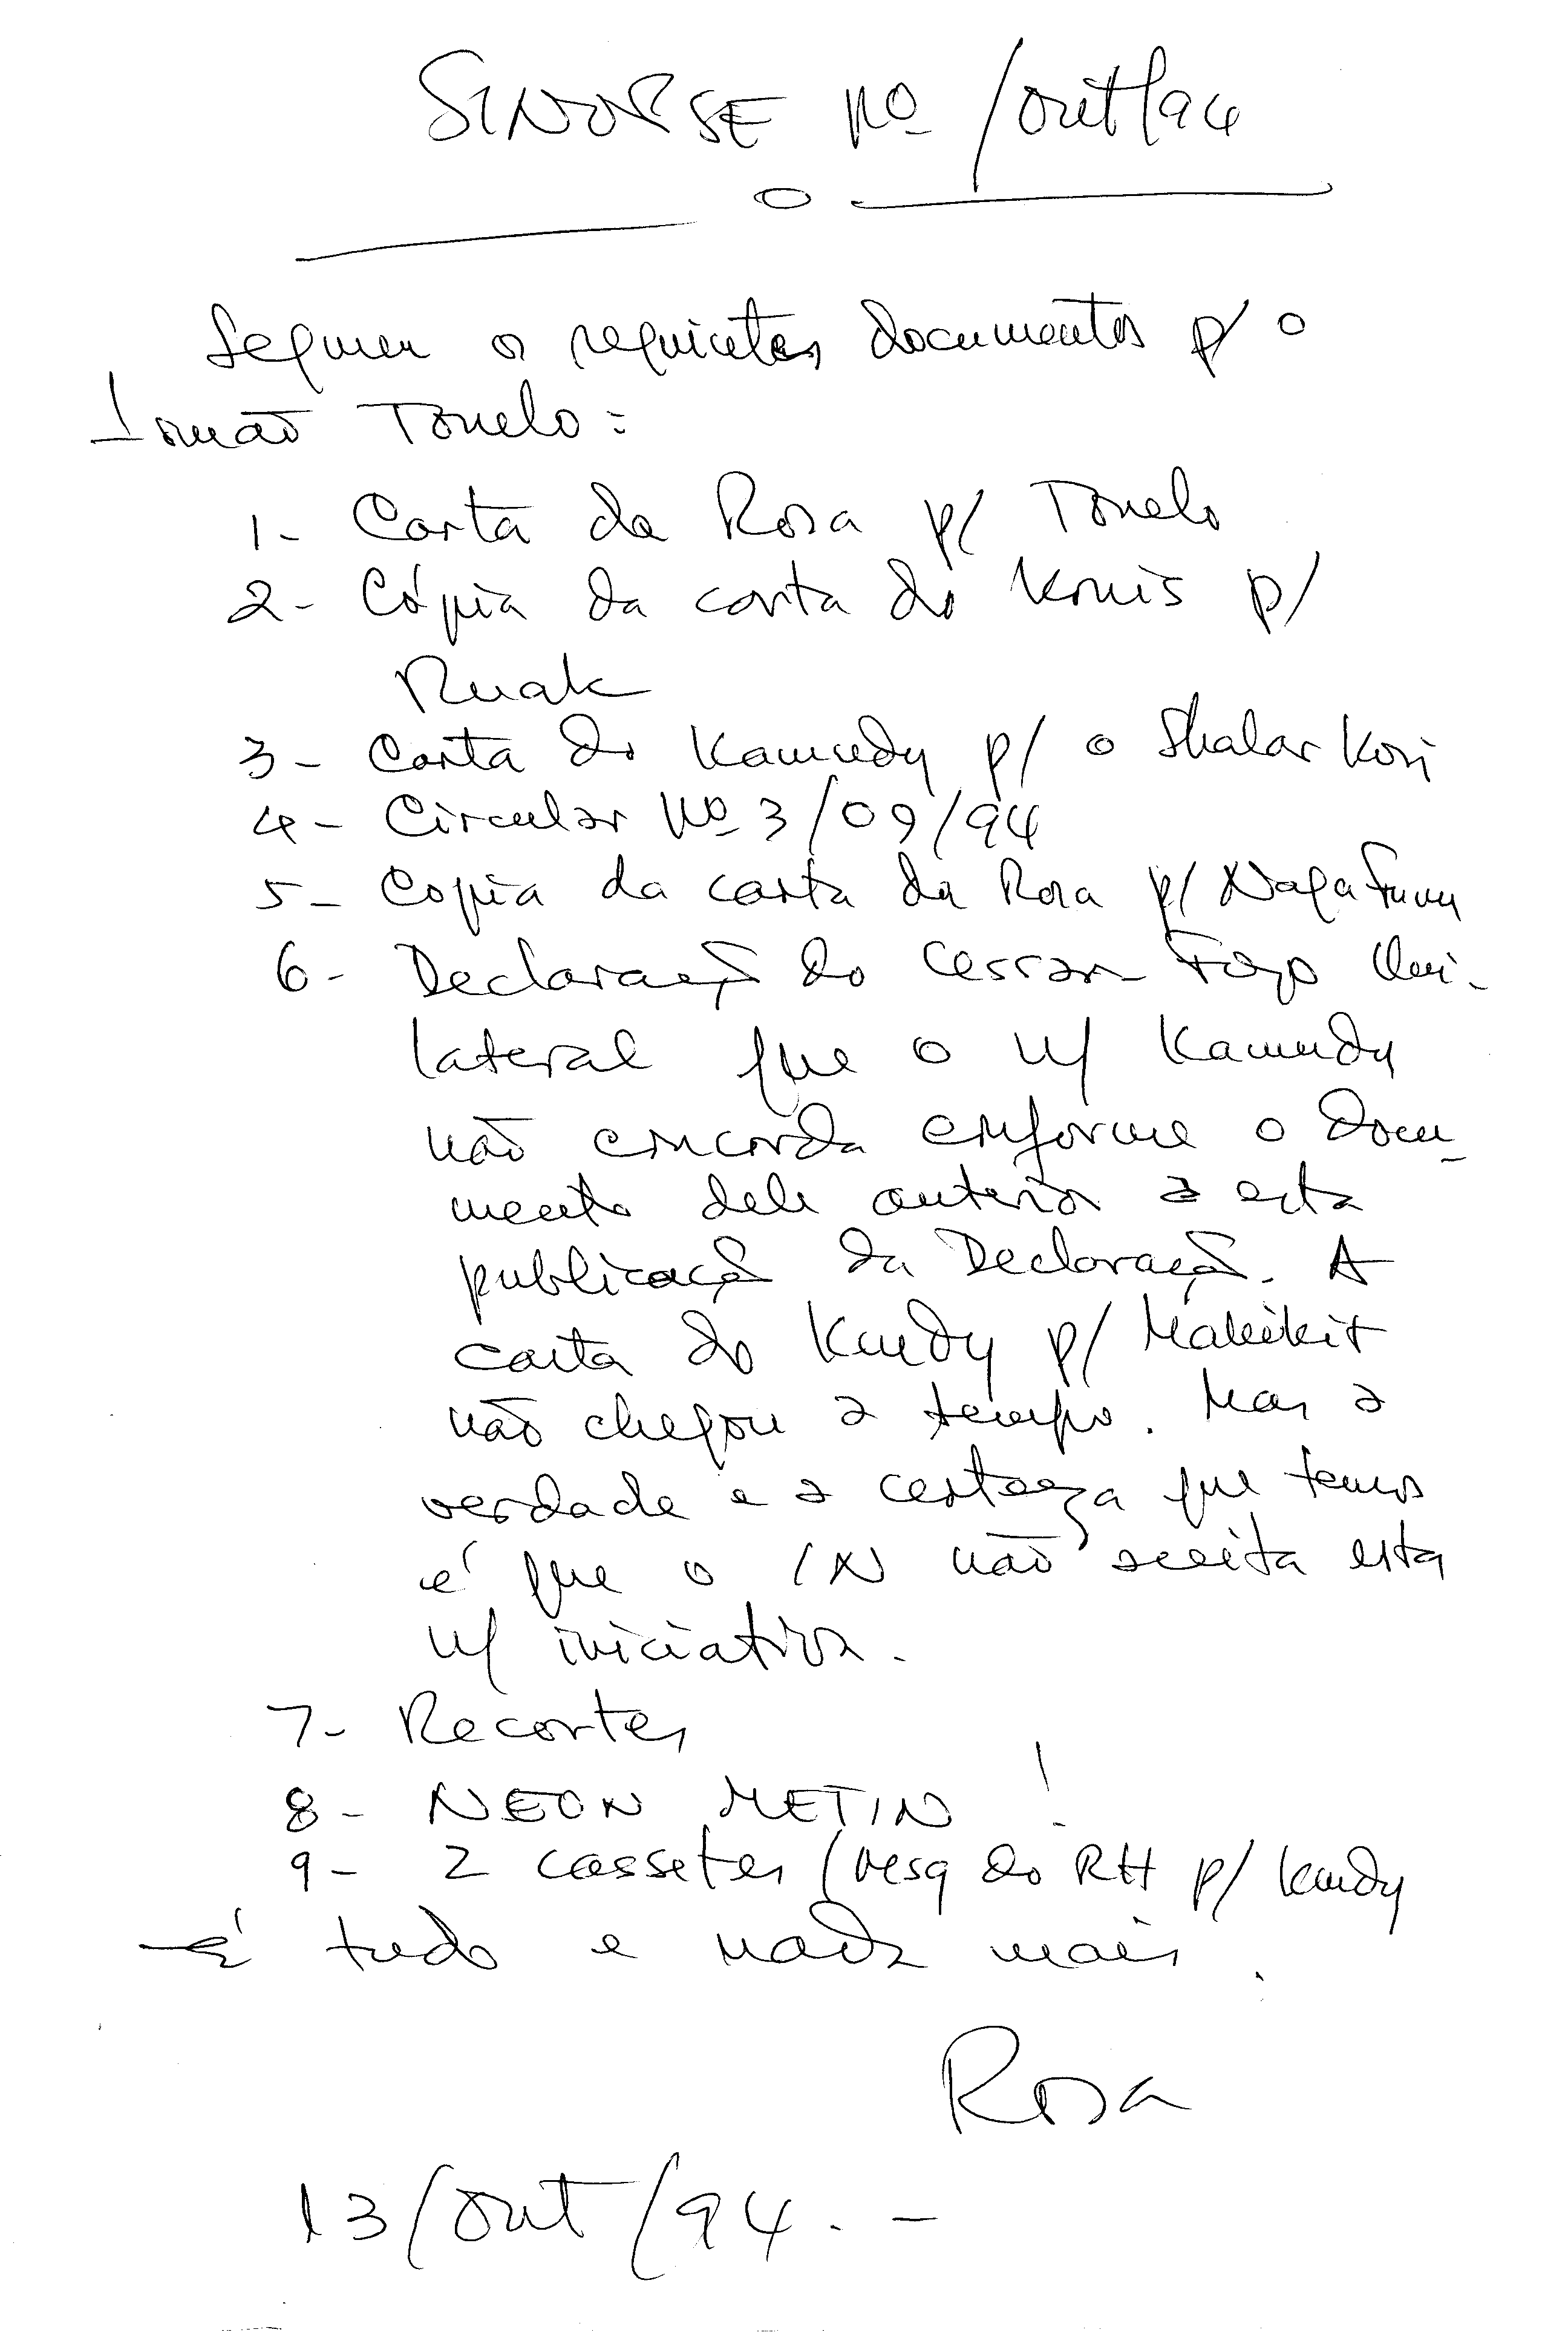 SINOPSE Nº /OUT/94
Seguem os seguintes documentos p/ o
Irmão Tonelo:
1- Carta da Rosa p/ Tonelo
2- Cópia da carta do Konis p/
Ruak
3- Carta do Kamudy p/ o Shalar Kosi
4- Circular Nº 3/09/94
5- Copia da carta da Rosa p/
6- Declaração do Cessar Fogo Uni-
lateral que o n/ Kamudy
não concorda conforme o docu-
mento dele anterior a esta
publicação da Declaração. A
carta do Kmdy p/
não chegou a tempo. Mas a
verdade e a certeza que temos
é que o IN não aceita esta
n/ iniciativa.
7- Recortes
8- NEON METIN!
9- 2 cassetes (Mesg do RH p/ Kmdy
É tudo e nada mais.
Rosa
13/OUT/94.-